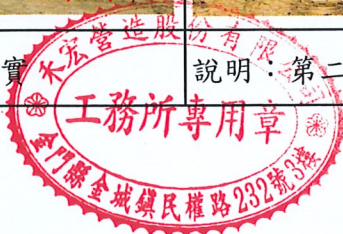 實
說明：第二
禾宏營造股份有限公司
工務所專用章
金門縣金城鎮民權路232號3樓